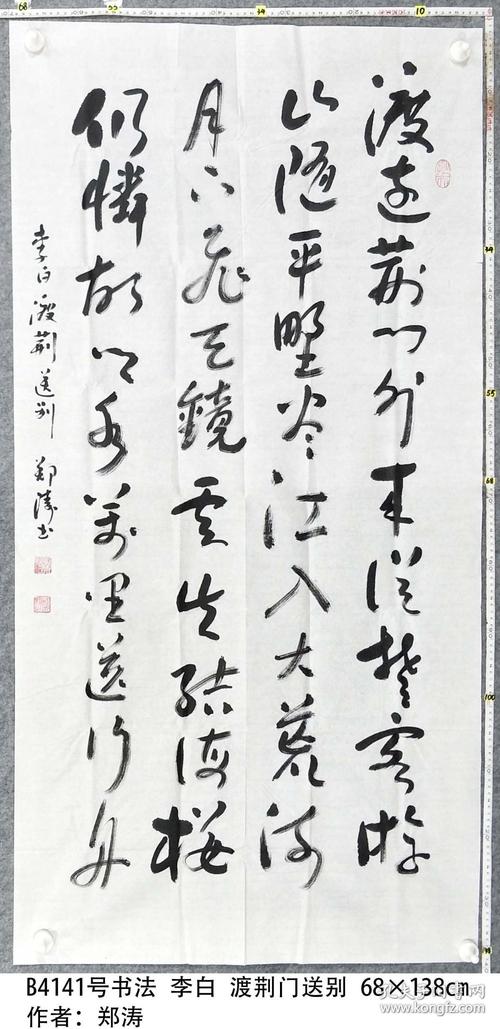 渡远荆门外来從楚客游
山随平野尽江入大荒流
月下飛天鏡雲生結海楼
仍憐故鄉水萬里送行舟
李白渡荆送别 郑涛书
B4141号书法 李白 渡荆门送别 68×138cm
作者：郑涛
孔夫子旧书网
kongfz.com